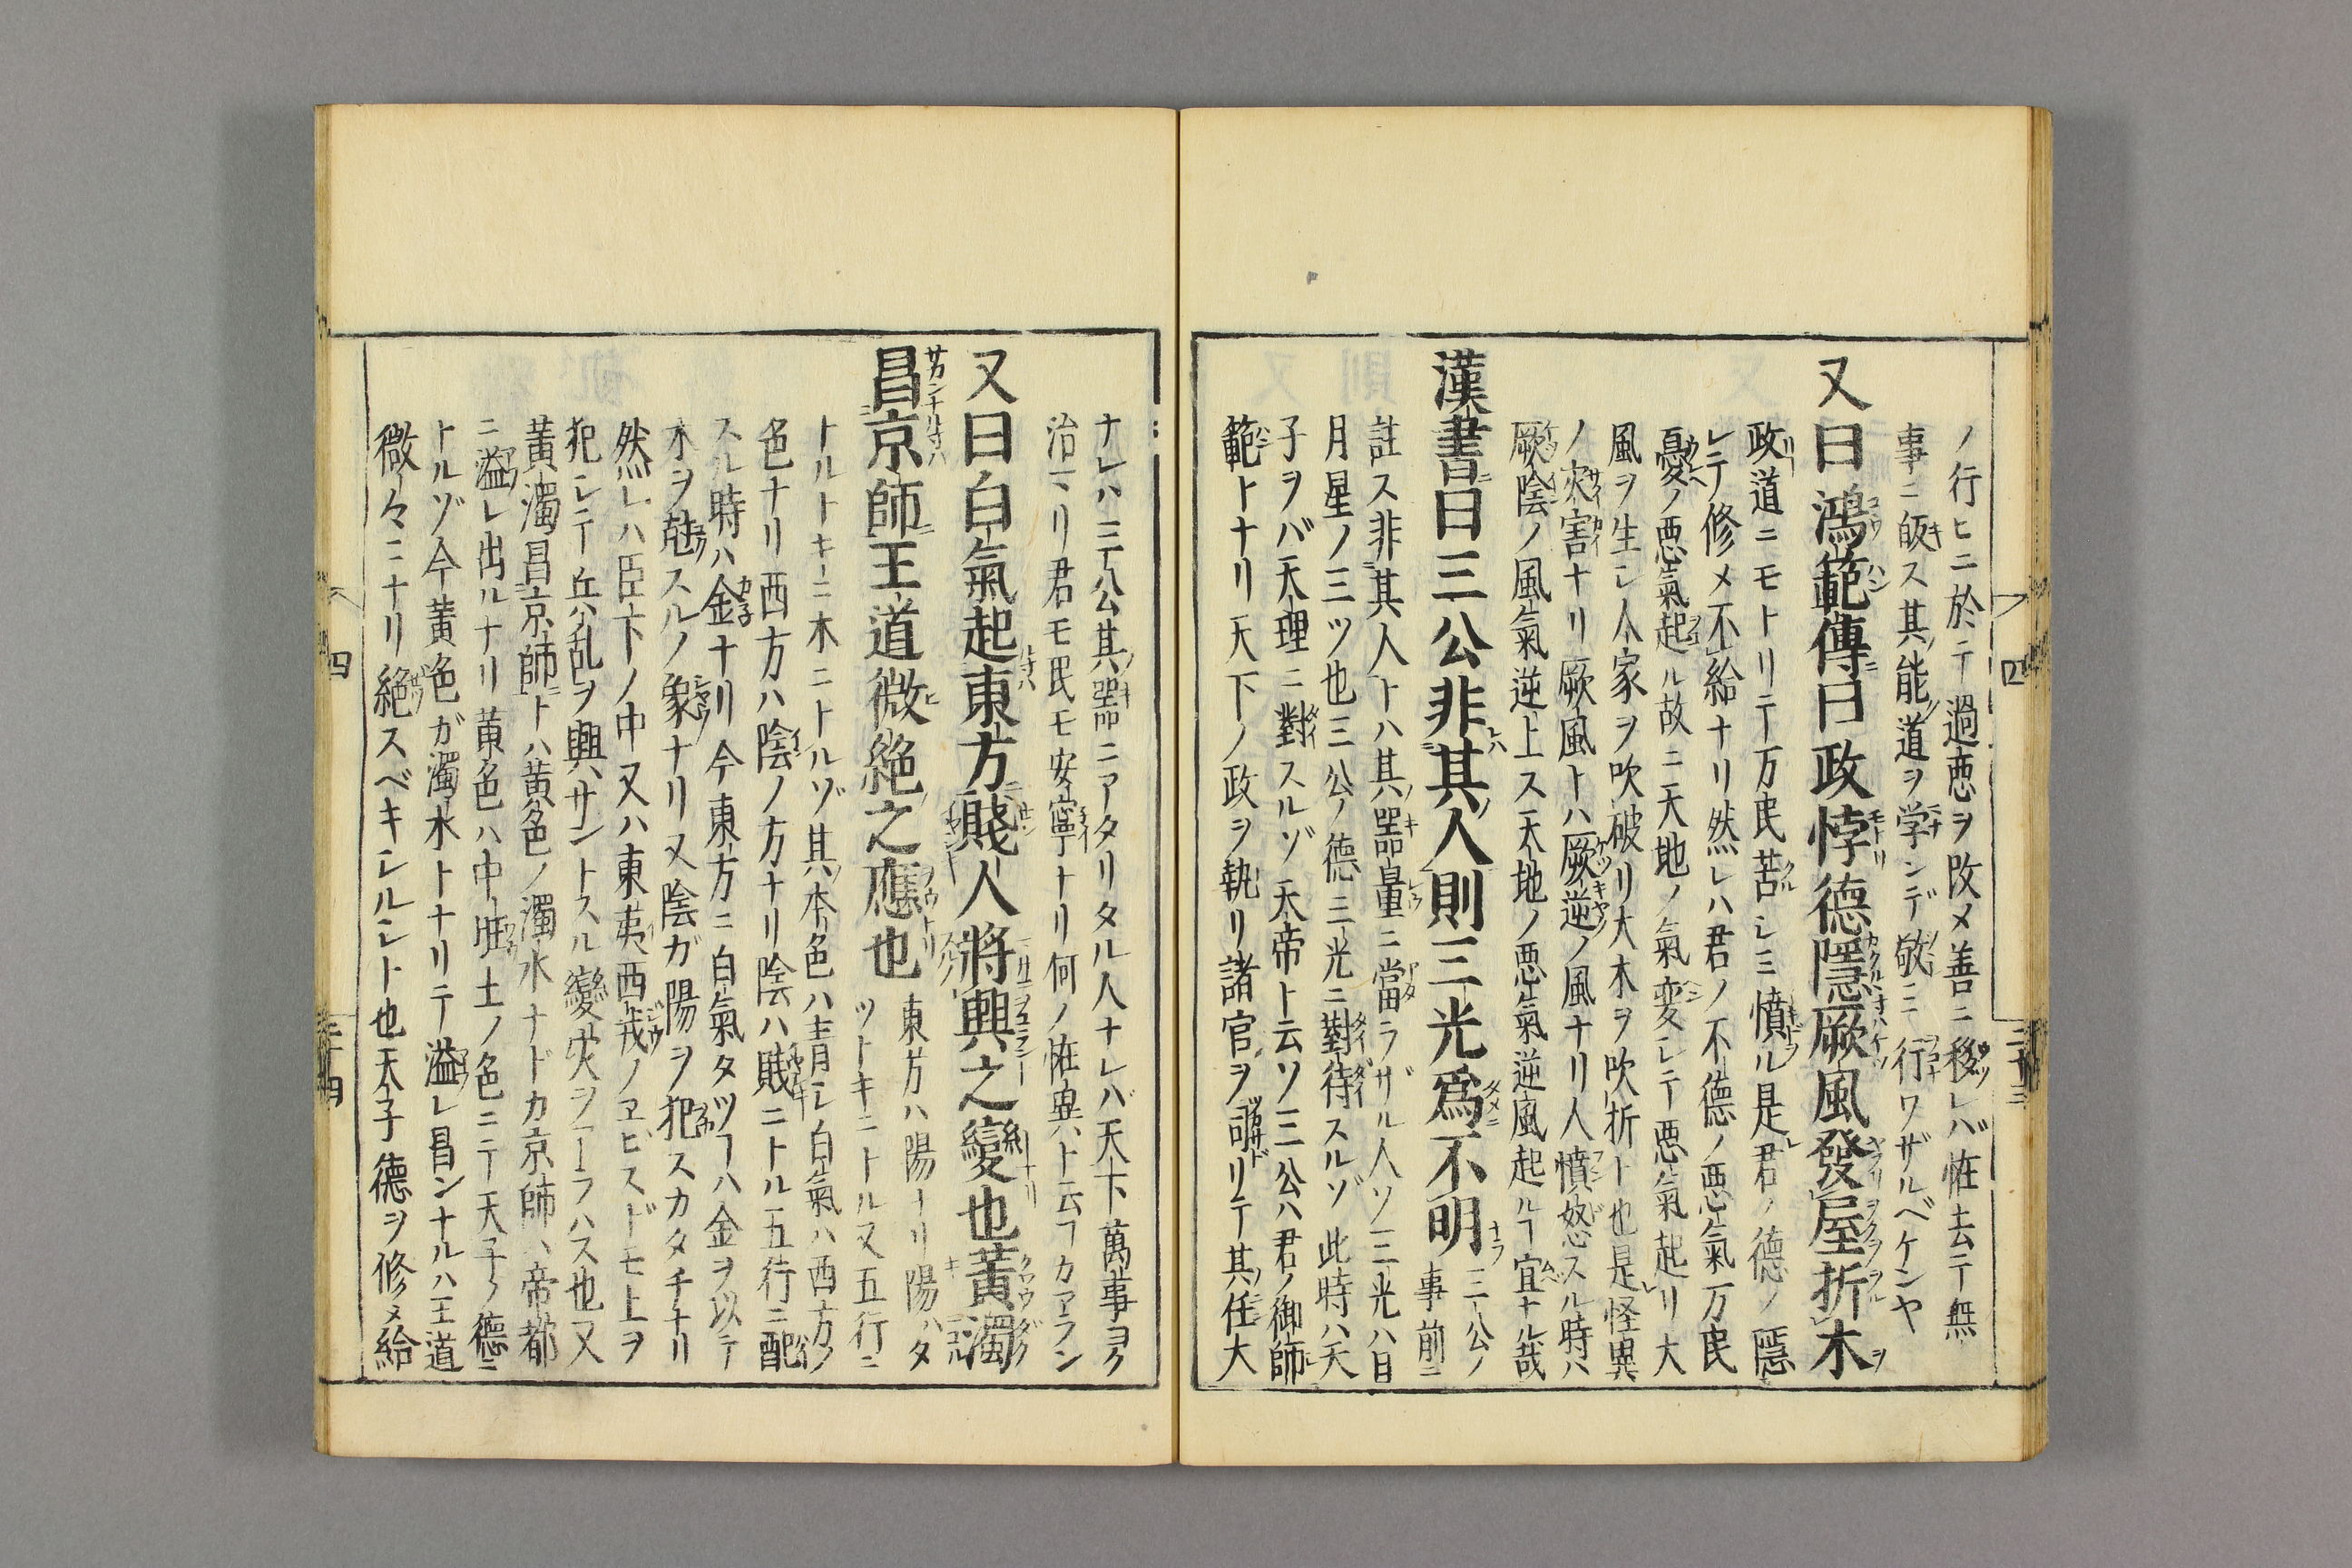 ノ行ヒニ於テ過悪ヲ改メ善ニ移レバ恠去テ無
事ニ皈ス其能道ヲ学ンデ敬ミ行ワザルベケンヤ
又曰鴻範傳曰政悖德隱厥風發屋折木
政道ニモトリテ万民苦シミ憤ル是君ノ德ノ隱
レテ修メ不給ナリ然レハ君ノ不德ノ悪氣万民
憂ノ悪氣起ル故ニ天地ノ氣変シテ悪氣起リ大
風ヲ生シ人家ヲ吹破リ大木ヲ吹折ト也是怪異
ノ災害ナリ厥風トハ厥逆ノ風ナリ人憤怒スル時ハ
厥陰ノ風氣逆上ス天地ノ悪氣逆風起ルヿ宜ナル哉
漢書曰三公非其人則三光爲不明 三公ノ
事前ニ
註ス非其人トハ其器量ニ當ラザル人ソ三光ハ日
月星ノ三ツ也三公ノ德三光ニ對待スルゾ此時ハ天
子ヲバ天理ニ對スルゾ天帝ト云ソ三公ハ君ノ御師
範トナリ天下ノ政ヲ執リ諸官ヲ司リテ其任大
四
三十三
ナレハ三公其器ニアタリタル人ナレバ天下萬事ヨク
治マリ君モ民モ安寧ナリ何ノ恠異ト云ヿカアラン
又曰白氣起東方賤人將興之變也黃濁
昌京師王道微絶之應也 東方ハ陽ナリ陽ハタ
ツトキニトル又五行ニ
トルトキニ木ニトルゾ其本色ハ青シ白氣ハ西方ノ
色ナリ西方ハ陰ノ方ナリ陰ハ賤ニトル五行ニ配
スル時ハ金ナリ今東方ニ白氣タツヿハ金ヲ以テ
木ヲ尅スルノ象ナリ又陰ガ陽ヲ犯スカタチナリ
然レハ臣下ノ中又ハ東夷西戎ノヱビスドモ上ヲ
犯シテ兵乱ヲ興サントスル變災ヲアラハス也又
黃濁昌京師トハ黃色ノ濁水ナドカ京師ハ帝都
ニ溢レ出ルナリ黃色ハ中土ノ色ニテ天子ノ德ニ
トルゾ今黃色ガ濁水トナリテ溢レ昌ンナルハ王道
微々ニナリ絶スベキシルシト也天子德ヲ修メ給
四
三十四